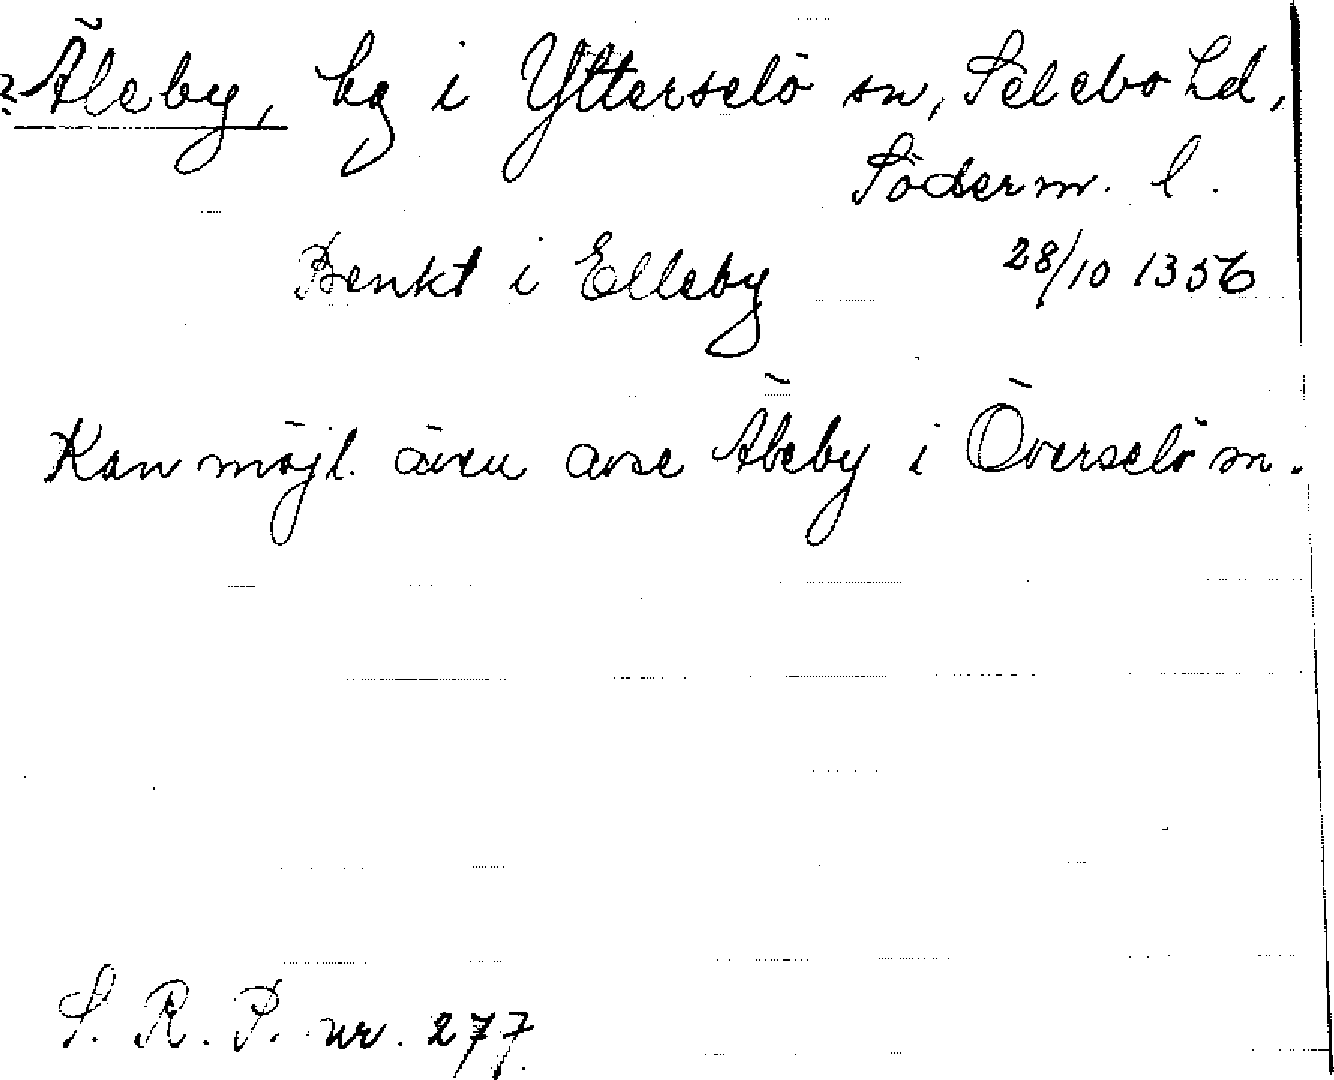 ? Äleby, by i Ytterselö sn, Selebo hd,
Söderm. l.
Benkt i Elleby 28/10 1356
Kan möjl. även avse Äleby i Överselö sn.
S. R. P. nr. 277.